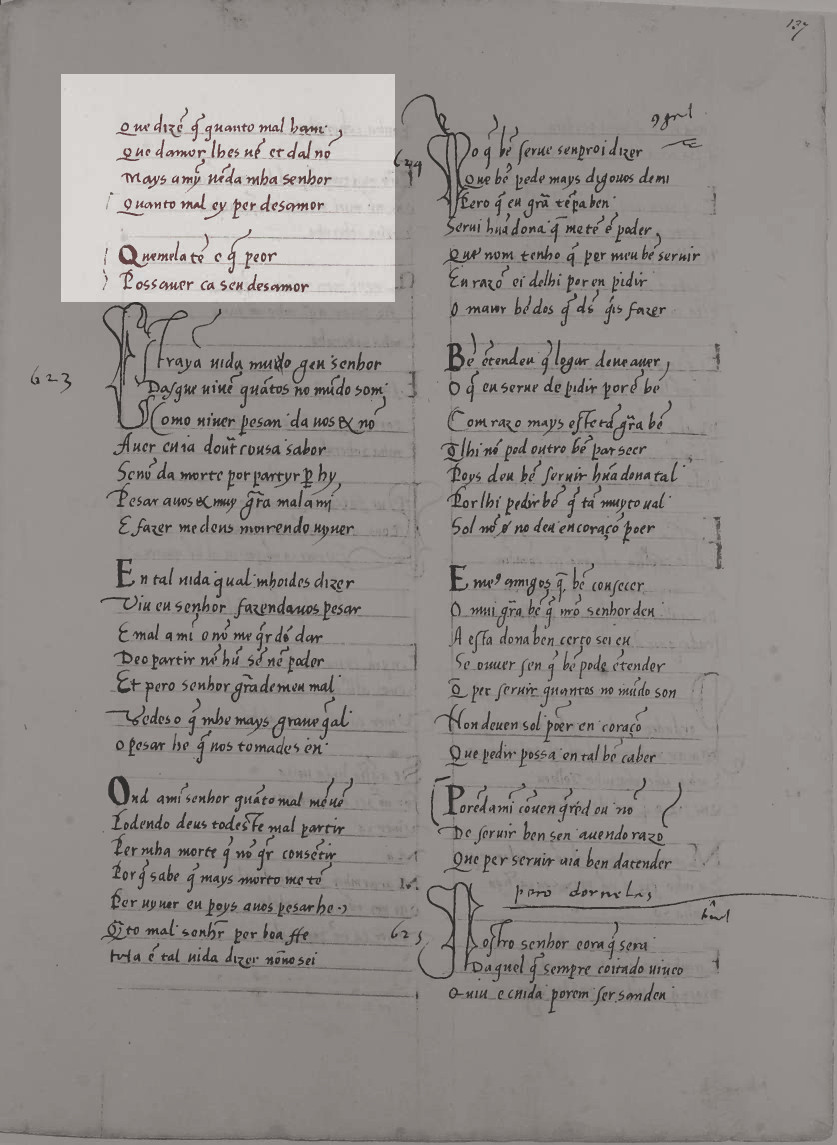 Que dizē q̄ quanto mal ham
Que damor lhes uē et dal nō
Mays amȳ uēda mha senhor
Quanto mal ey per desamor
Quemela tē e q̄ peor
Possauer ca seu desamor
137
623
Straya uida muido geu senhor
Dasque uiuē quātos no mūdo som
Como uiuer pesan da uos & nō
Auer cuia doutr̄ cousa sabor
Senō da morte por partyr ꝑ hy
Pesar auos & muy gr̄a mal ami
E fazer me deus morrendo uyuer
En tal uida qual mhoides dizer
Viu eu senhor fazendauos pesar
E mal a mī o nō me q̄r dō dar
Deo partir nē hū sē nē poder
Et pero senhor gr̄ade meu mal
Vedes o q̄ mhe mays graue gal
o pesar he q̄ uos tomades en
Ond ami senhor quāto mal me uē
Podendo deus todeste mal partir
Per mha morte q̄ nō q̄r consētir
Por q̄ sabe q̄ mays morto me tē
Per uyuer eu poys auos pesar he
Q̄to mal senhr̄ per boa ffe
tuta ē tal uida dizer nōno sei
624
Po q̄ bē serue senproi dizer
Que bē pede mays digouos demi
Pero q̄ eu gr̄a tēpa ben
Serui hūa dona q̄ me tē ē poder
Que nom tenho q̄ per meu bē seruir
Eu razō ei delhi por en pidir
O maior bē dos q̄ ds̄ q̄is fazer
Bē ētendeu q̄ logar deue auer
O q̄ eu serue de pidir por ē bē
Com razō mays est e tā gr̄a bē
Qlhi nō pod outro bē parecer
Poys deu bē seruir hūa dona tal
Por lhi pedir bē q̄ tā muyto ual
Sol nō o no deu en coraçō poer
E meꝰ amigos q̄ bē consecer
O mui gr̄a bē q̄ nr̄o senhor deu
A esta dona ben certo sei eu
Se ouuer sen q̄ bē pode ētender
Q̄ per seruir quantos no mūdo son
Non deuen sol poer en coraçō
Que pedir possa en tal bē caber
Porēdami cōuen q̄red ou nō
De seruir ben sen auendo razō
Que per seruir aia ben datender
pero dornelas
625
Nostro senhor e ora q̄ sera
Daquel q̄ sempre coitado uiueo
Quiu e cuida porem ser sandeu